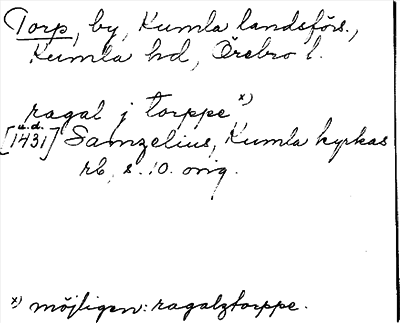 Torp, by, Kumla landsförs.,
Kumla hd, Örebro l.
ragal j torppe x)
[u.d. 1431] Samzelius, Kumla kyrkas
rb, s. 10. orig.
x) möjligen: ragalztorppe.